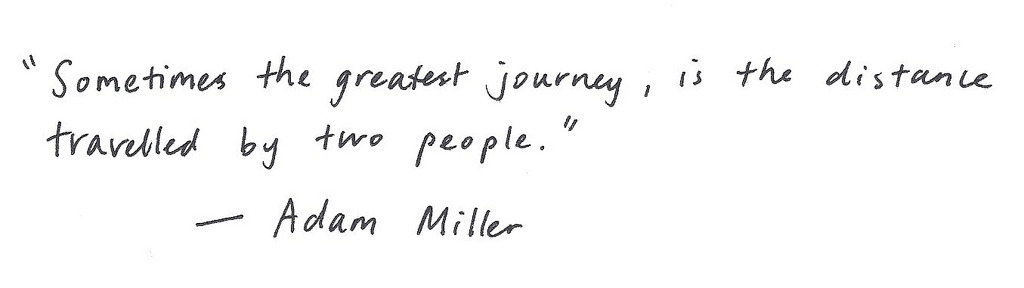 "Sometimes the greatest journey, is the distance
travelled by two people."
— Adam Miller